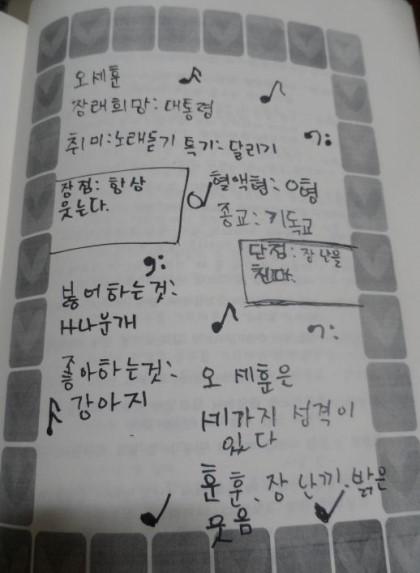 오세훈
장래희망: 대통령
취미:노래듣기 특기: 달리기
장점: 항상
웃는다.
혈액형: O형
종교: 기독교
단점: 장난을
친다.
싫어하는것:
좋아하는것:
강아지
오 세훈은
세가지 성격이
있다
훈훈, 장난끼, 밝은
웃음